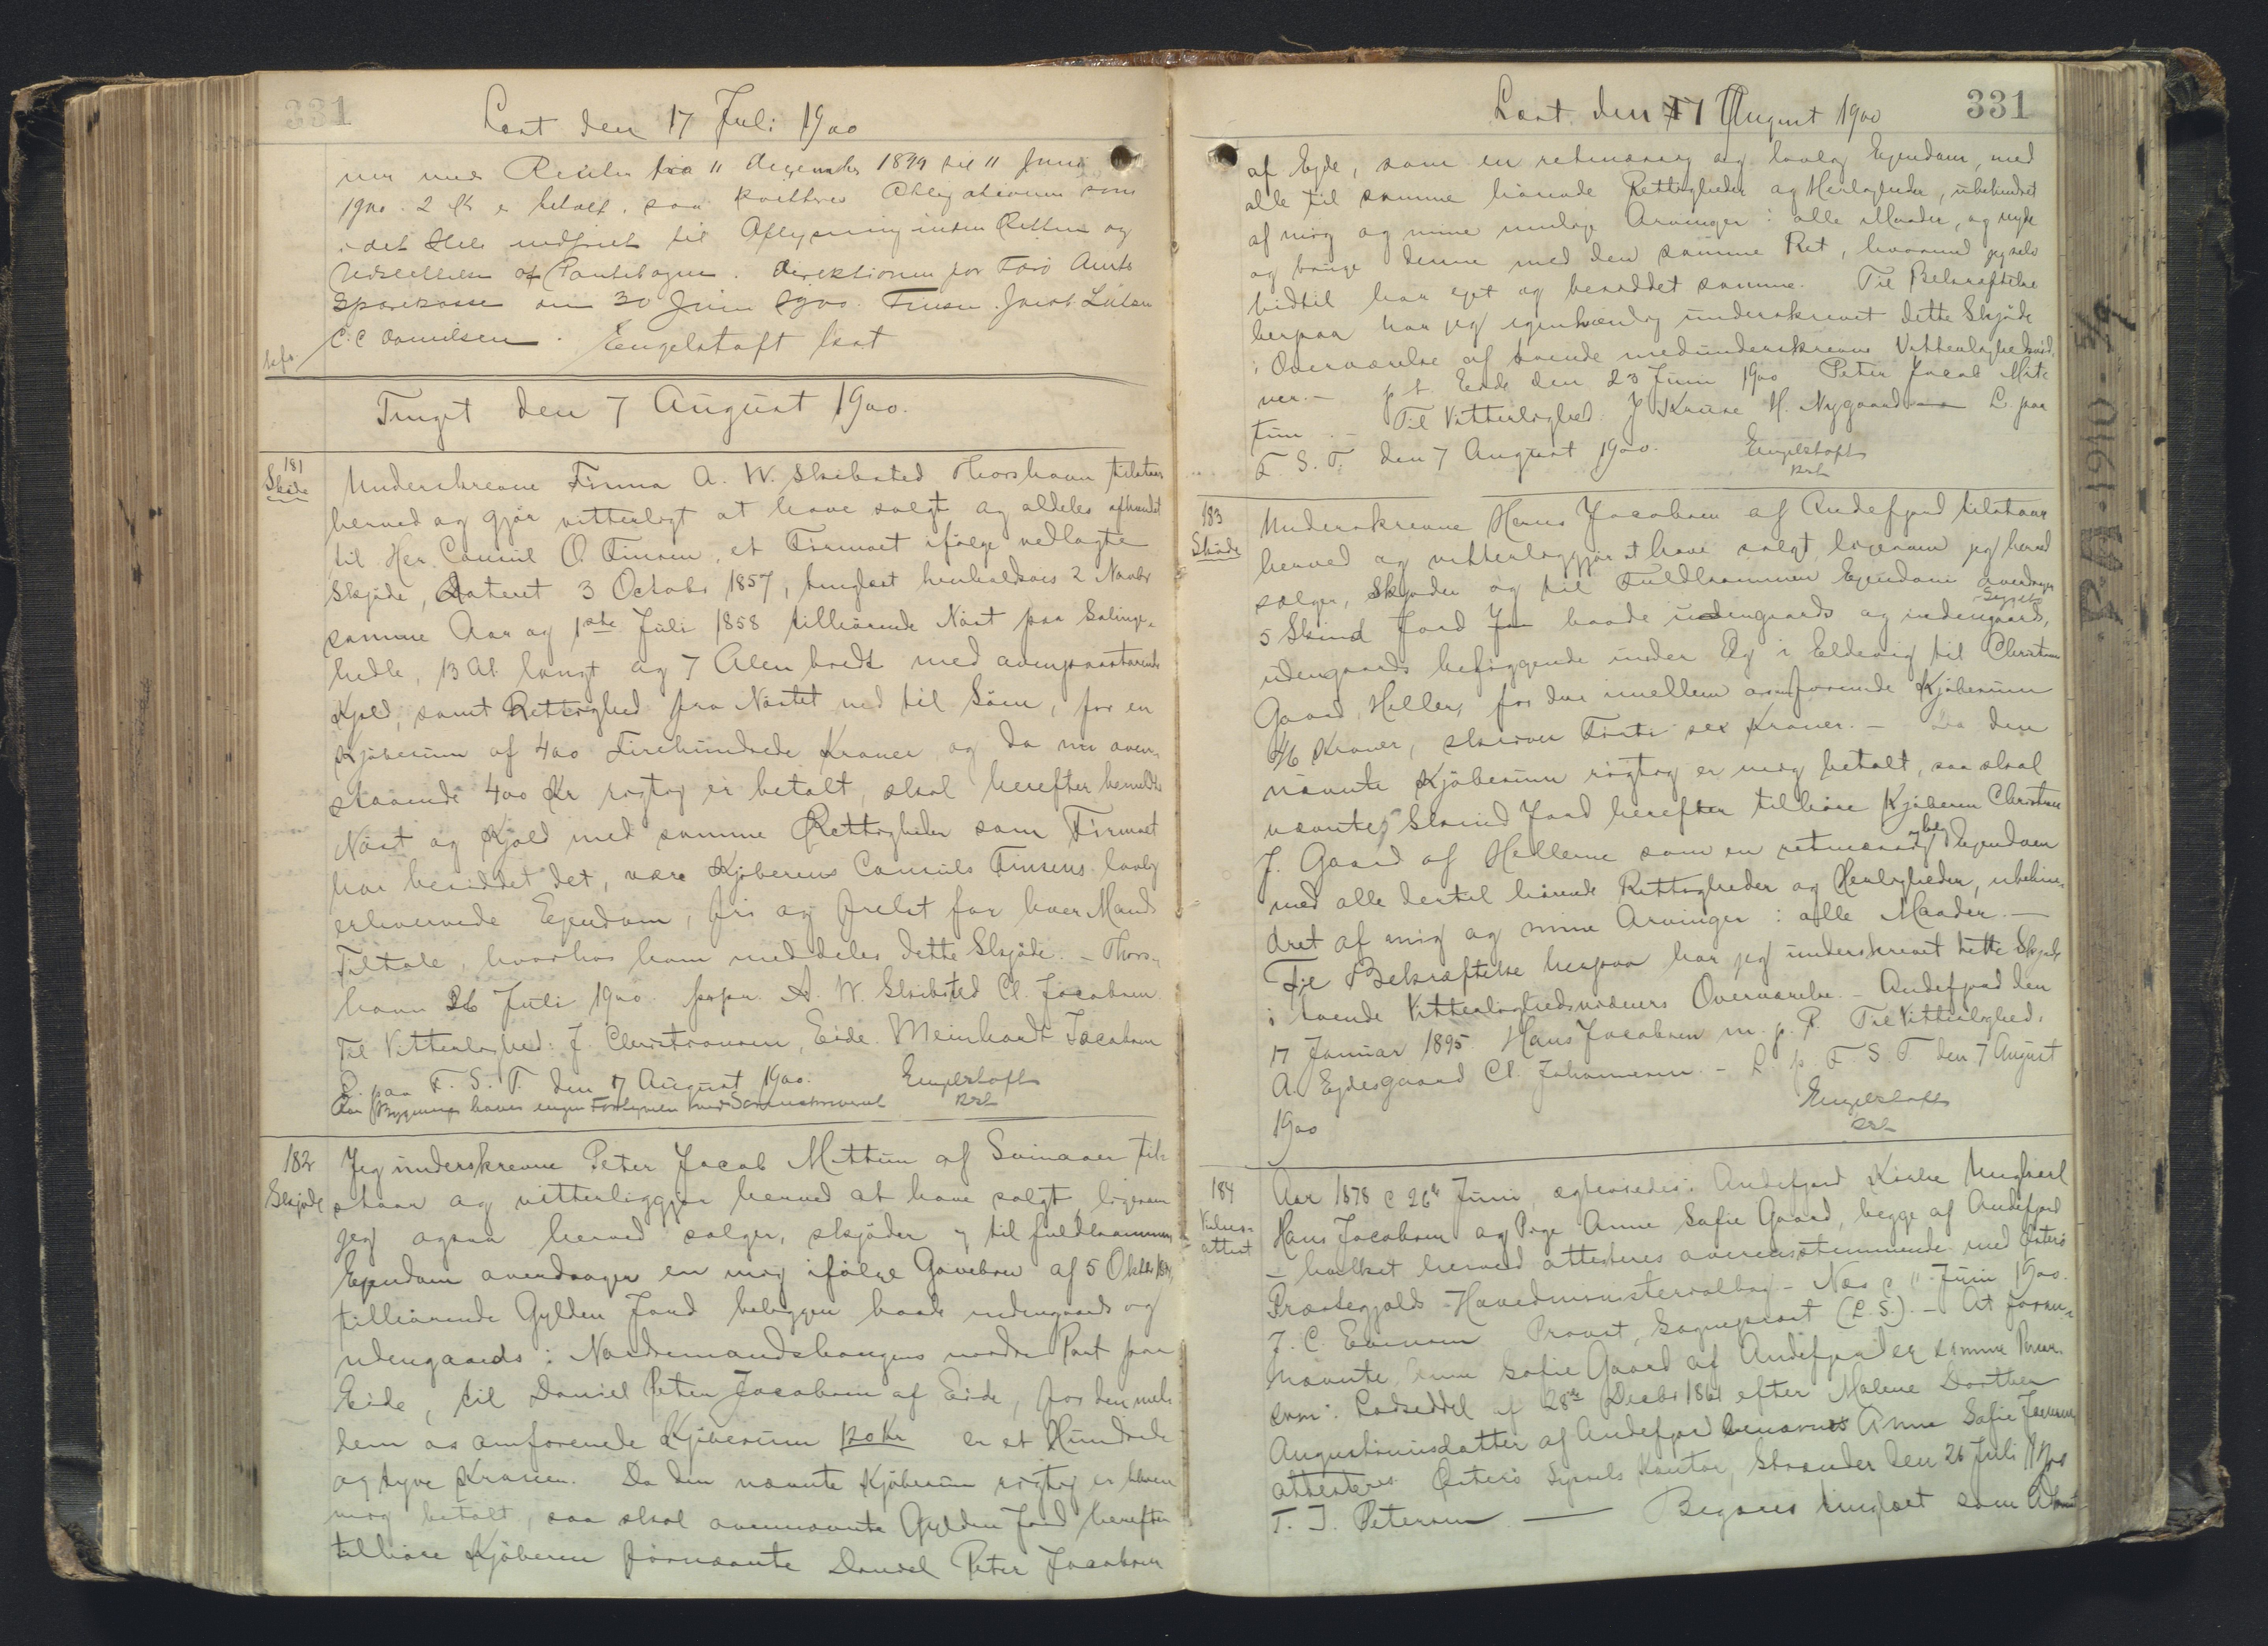 331
Læst den 17 Juli 1900
nu med Renter fra 11 december 1899 til 11 Juni
1900. 2 Kr er betalt, saa kvitteres Obligationen som
i det Hele indfriet til Aflysning inden Retten og
Udslettelse af Pantebogen. Direktionen for Færö Amts
Sparekasse den 30 Juni 1900. Finsen. Jacob Lützen
C.C Danielsen. Engelstoft læst
Tinget den 7 August 1900.
181
Skøde
Underskrevne Firma A. W. Skibsted Thorshavn tilstaar
herved og gjör vitterligt at have solgt og aldeles afhændet
til Her. Consul O. Finsen, et Firmaet ifölge vedlagte
Skjöde, Dateret 3 Octobr 1857, tinglæst henholdsvis 2 Novbr
samme Aar og 1ste Juli 1858 tilhörende Nöst paa Salinge-
hedle, 13 Al. langt og 7 Alen bredt med ovenpaastaaende
Kjald, samt Rettighed fra Nöstet ned til Söen, for en
Kjöbesum af 400 Firehundrede Kroner og da nu oven-
staaende 400 Kr rigtig er betalt, skal herefter bemeldte
Nöst og Kjald med samme Rettigheder som Firmaet
har besiddet det, være Kjöberens Consul Finsens lovlig
erhvervede Ejendom, fri og frelst for hver Mands
Tiltale, hvorhos ham meddeles dette Skjöde. - Thors-
havn 26 Juli 1900. pr pr. A. W. Skibsted Cl. Jacobsen
Til Vitterlighed: J. Christiansen, Eide. Meinhardt Jacobsen
L. paa F. S. T. den 7 August 1900. Engelstoft
182
Skjöde
Jeg underskrevne Peter Jacob Mittun af Svinaaer til-
staar og vitterliggjör herved at have solgt, ligesom
jeg ogsaa herved sælger, skjöder og til fuldkommen
Ejendom overdrager en mig ifölge Gavebrev af 5 Oktbr
tilhörende Gylden Jord beliggen baade indengaards og
udengaards i Nordremandshaugens nordre Part paa
Eide, til Daniel Peter Jacobsen af Eide, for den mel-
lem os omforenede Kjöbesum 120 Kr er et Hundrede
og tyve Kroner. Da den nævnte Kjöbesum rigtig er bleven
mig betalt, saa skal ovennævnte Gylden Jord herefter
tilhöre Kjöberen fornævnte Daniel Peter Jacobsen
Læst. den 7 August 1900
331
af Ejde, som en retmæssig og lovlig Ejendom, med
alle til samme hörende Rettigheder og Herligheder, ubehindret
af mig og mine mulige Arvinger i alle Maader, og nyde
og bruge denne med den samme Ret, hvormed jeg selv
hidtil har ejet og besiddet samme. Til Bekræftelse
herpaa har jeg egenhændig underskrevet dette Skjöde
i Overværelse af tvende medunderskrevne Vitterlighedsvid-
ner. - p t Eide den 23 Juni 1900 Peter Jacob Mit-
tun. - Til Vitterlighed. J Kruse H. Nygaard L. paa
F S. T. den 7 August 1900. Engelstoft
183
Skøde
Underskrevne Hans Jacobsen af Andefjord tilstaar
herved og vitterliggjör at have solgt, ligesom jeg herved
sælger, skjöder og til Fuldkommen Ejendom overdrager
5 Skind Jord baade indengaards og indengaards,
udengaards beliggende under Eg i Eldevig til Christian
Gaard, Heller, for den imellem os omforenede Kjöbesum
46 Kroner, skriver Firti sex Kroner. - Da den
nævnte Kjöbesum rigtig er mig betalt, saa skal
nævnte 5 Skind Jord herefter tilhöre Kjöberen Christian
J. Gaard af Hellerne som en retmæssig Ejendom
med alle dertil hörende Rettigheder og Herligheder, ubehin-
dret af mig og mine Arvinger i alle Maader. -
Til Bekræftelse herpaa har jeg underskrevet dette Skjöde
i tvende Vitterlighedsvidners Overværelse. - Andefjord den
17 Januar 1895. Hans Jacobsen m. p. P. Til Vitterlighed.
A. Ejdesgaard Cl. Johannesen. - L p F. S. T. den 7 August
1900
Engelstoft
184
Vielses-
attest
Aar 1878 d 26de Juni, ægteviedes i Andefjord Kirke Ungkarl
Hans Jacobsen og Pige Anne Sofie Gaard, begge af Andefjord
- hvilket herved attesteres overensstemmende med Österö
Præstegjelds Hovedministerialbog - Næs d 11 Juni 1900.
J. C. Evensen Provst, Sognepræst (L. S.). - At forn-
nævnte Anne Sofie Gaard af Andefjord er samme Per-
som i Lodseddel af 28de Decbr 1861 efter Malene Dorthea
Augustinusdatter af Andefjord benævnes Anne Sofie Jensen,
attesteres Österö Syssels Kontor, Strænder den 26 Juli 1900
T. J. Petersen — Begæres tinglæst som Adkomst
P.A. 1910 - 5/9